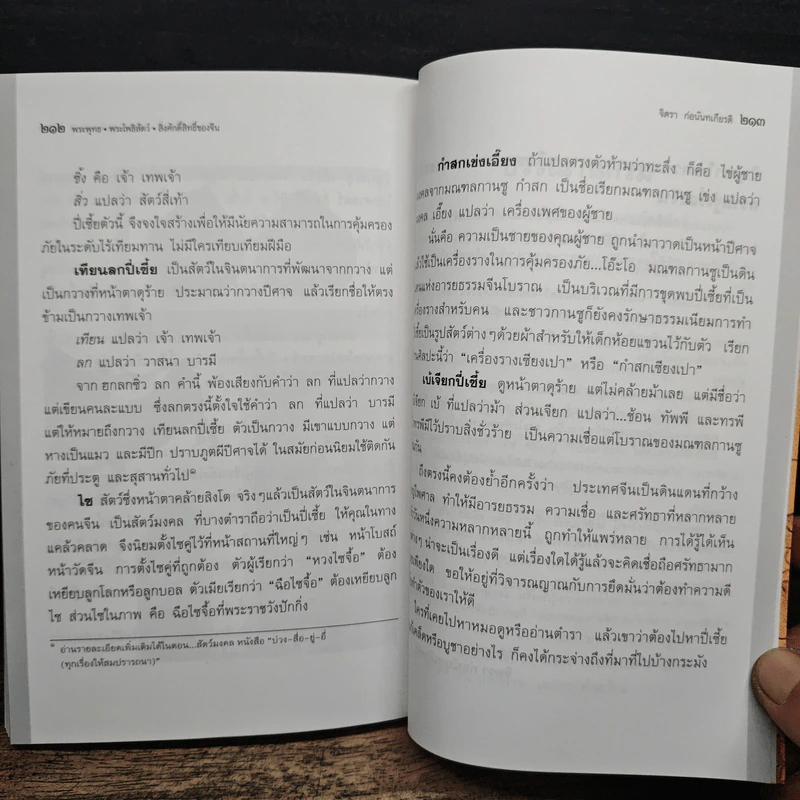 ๒๑๒ พระพุทธ • พระโพธิสัตว์ • สิ่งศักดิ์สิทธิ์ของจีน
ซิ้ง คือ เจ้า เทพเจ้า
สิ่ว แปลว่า สัตว์สี่เท้า
ปี่เซี้ยตัวนี้ จึงจงใจสร้างเพื่อให้มีนัยความสามารถในการคุ้มครอง
ภัยในระดับไร้เทียมทาน ไม่มีใครเทียบเทียมฝีมือ
เทียนลกปี่เซี้ย เป็นสัตว์ในจินตนาการที่พัฒนาจากกวาง แต่
เป็นกวางที่หน้าตาดุร้าย ประมาณว่ากวางปีศาจ แล้วเรียกชื่อให้ตรง
ข้ามเป็นกวางเทพเจ้า
เทียน แปลว่า เจ้า เทพเจ้า
ลก แปลว่า วาสนา บารมี
จาก ฮกลกซิ่ว ลก คำนี้ พ้องเสียงกับคำว่า ลก ที่แปลว่ากวาง
แต่เขียนคนละแบบ ซึ่งลกตรงนี้ตั้งใจใช้คำว่า ลก ที่แปลว่า บารมี
แต่ให้หมายถึงกวาง เทียนลกปี่เซี้ย ตัวเป็นกวาง มีเขาแบบกวาง แต่
หางเป็นแมว และมีปีก ปราบภูตผีปีศาจได้ ในสมัยก่อนนิยมใช้ติดกัน
ภัยที่ประตู และสุสานทั่วไป
ไซ สัตว์ซึ่งหน้าตาคล้ายสิงโต จริงๆแล้วเป็นสัตว์ในจินตนาการ
ของคนจีน เป็นสัตว์มงคล ที่บางตำราถือว่าเป็นปี่เซี้ย ให้คุณในทาง
แคล้วคลาด จึงนิยมตั้งไซคู่ไว้ที่หน้าสถานที่ใหญ่ๆ เช่น หน้าโบสถ์
หน้าวัดจีน การตั้งไซคู่ที่ถูกต้อง ตัวผู้เรียกว่า “หวงไซจื้อ” ต้อง
เหยียบลูกโลกหรือลูกบอล ตัวเมียเรียกว่า “ฉือไซจื้อ” ต้องเหยียบลูก
ไซ ส่วนไซในภาพ คือ ฉือไซจื้อที่พระราชวังปักกิ่ง
อ่านรายละเอียดเพิ่มเติมได้ในตอน...สัตว์มงคล หนังสือ “บ่วง-สื่อ-ยู่-อี่
(ทุกเรื่องให้สมปรารถนา)”
จิตรา ก่อนันทเกียรติ ๒๑๓
กำสกเข่งเอี๊ยง ถ้าแปลตรงตัวห้ามว่าทะลึ่ง ก็คือ ไข่ผู้ชาย
จากมณฑลกานซู กำสก เป็นชื่อเรียกมณฑลกานซู เข่ง แปลว่า
เอี๊ยง แปลว่า เครื่องเพศของผู้ชาย
นั่นคือ ความเป็นชายของคุณผู้ชาย ถูกนำมาวาดเป็นหน้าปีศาจ
ใช้เป็นเครื่องรางในการคุ้มครองภัย...โอ๊ะโอ มณฑลกานซูเป็นดิน
แห่งอารยธรรมจีนโบราณ เป็นบริเวณที่มีการขุดพบปี่เซี้ยที่เป็น
สำหรับคน และชาวกานซูก็ยังคงรักษาธรรมเนียมการทำ
เป็นรูปสัตว์ต่างๆด้วยผ้าสำหรับให้เด็กห้อยแขวนไว้กับตัว เรียก
นี้ว่า “เครื่องรางเซียงเปา” หรือ “กำสกเซียงเปา”
เบ้เจียกปี่เซี้ย ดูหน้าตาดุร้าย แต่ไม่คล้ายม้าเลย แต่มีชื่อว่า
เบ้ ที่แปลว่าม้า ส่วนเจียก แปลว่า...ช้อน ทัพพี และทรพี
มีไว้ปราบสิ่งชั่วร้าย เป็นความเชื่อแต่โบราณของมณฑลกานซู
ถึงตรงนี้คงต้องย้ำอีกครั้งว่า ประเทศจีนเป็นดินแดนที่กว้าง
ทำให้มีอารยธรรม ความเชื่อ และศรัทธาที่หลากหลาย
ความหลากหลายนี้ ถูกทำให้แพร่หลาย การได้รู้ได้เห็น
น่าจะเป็นเรื่องดี แต่เรื่องใดได้รู้แล้วจะคิดเชื่อถือศรัทธามาก
ขอให้อยู่ที่วิจารณญาณกับการยึดมั่นว่าต้องทำความดี
ตัวของเราให้ดี
ใครที่เคยไปหาหมอดูหรืออ่านตำรา แล้วเขาว่าต้องไปหาปี่เซี้ย
หรือบูชาอย่างไร ก็คงได้กระจ่างถึงที่มาที่ไปบ้างกระมัง